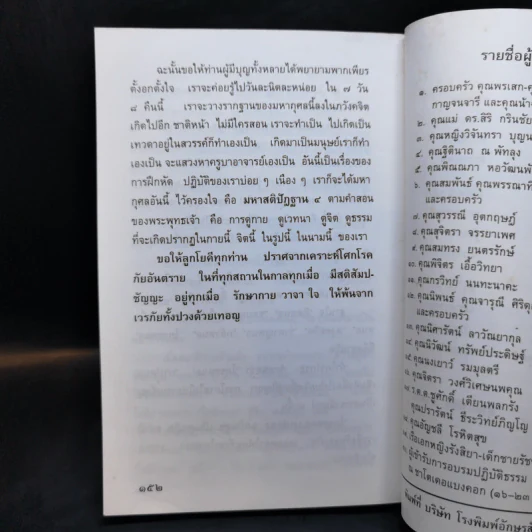 ฉะนั้นขอให้ท่านผู้มีบุญทั้งหลายได้พยายามพากเพียร
ตั้งอกตั้งใจ เราจะค่อยรู้ไปวันละนิดละหน่อย ใน ๗ วัน
๘ คืนนี้ เราจะวางรากฐานของมหากุศลนี้ลงในภวังคจิต
เกิดไปอีก ชาติหน้า ไม่มีใครสอน เราจะทำเป็น ไปเกิดเป็น
เทวดาอยู่ในสวรรค์ก็ทำเองเป็น เกิดมาเป็นมนุษย์เราก็ทำ
เองเป็น จะแสวงหาครูบาอาจารย์เองเป็น อันนี้เป็นเรื่องของ
การฝึกหัด ปฏิบัติของเราบ่อย ๆ เนือง ๆ เราก็จะได้มหา
กุศลอันนี้ ไว้ครองใจ คือ มหาสติปัฏฐาน ๔ ตามคำสอน
ของพระพุทธเจ้า คือ การดูกาย ดูเวทนา ดูจิต ดูธรรม
ที่จะเกิดปรากฏในกายนี้ จิตนี้ ในรูปนี้ ในนามนี้ ของเรา
ขอให้ลูกโยคีทุกท่าน ปราศจากเคราะห์โศกโรค
ภัยอันตราย ในที่ทุกสถานในกาลทุกเมื่อ มีสติสัมป-
ชัญญะ อยู่ทุกเมื่อ รักษากาย วาจา ใจ ให้พ้นจาก
เวรภัยทั้งปวงด้วยเทอญ
๑๕๒
รายชื่อผู้
๑. ครอบครัว คุณพรเสก-คุ
กาญจนจารี และคุณน้า
๒. คุณแม่ ดร.สิริ กรินชัย
๓. คุณหญิงวิจันทรา บุญน
๔. คุณฐิตินาถ ณ พัทลุง
๕. คุณพิณณภา หอวัฒนพั
๖. คุณสมพันธ์ คุณพรรณาที
และครอบครัว
๗. คุณสุวรรณี อุดกฤษฎ์
๘. คุณสุจิตรา จรรยาเพศ
๙. คุณสมทรง ยนตรรักษ์
คุณพิจิตร เอื้อวิทยา
คุณกรวิทย์ นนทะนาคะ
คุณนิพนธ์ คุณจารุณี ศิริคุ
และครอบครัว
คุณนิศารัตน์ ลาวัณยากุล
คุณนิวัฒน์ ทรัพย์ประดิษฐ์
คุณนงเยาว์ รมมุลตรี
คุณจิตรา วงศ์วิเศษนพคุณ
ร.ต.ต.ชูศักดิ์ เตียนพลกรัง
คุณปรารัตน์ ธีระวิทย์ภิญโญ
คุณอัญชลี โรหิตสุข
เรือเอกหญิงรังสิยา-เด็กชายรัช
ผู้เข้ารับการอบรมปฏิบัติธรรม
ณ ชาโตเดอแบงคอก (๑๖-๒๓
พิมพ์ที่ บริษัท โรงพิมพ์อักษร